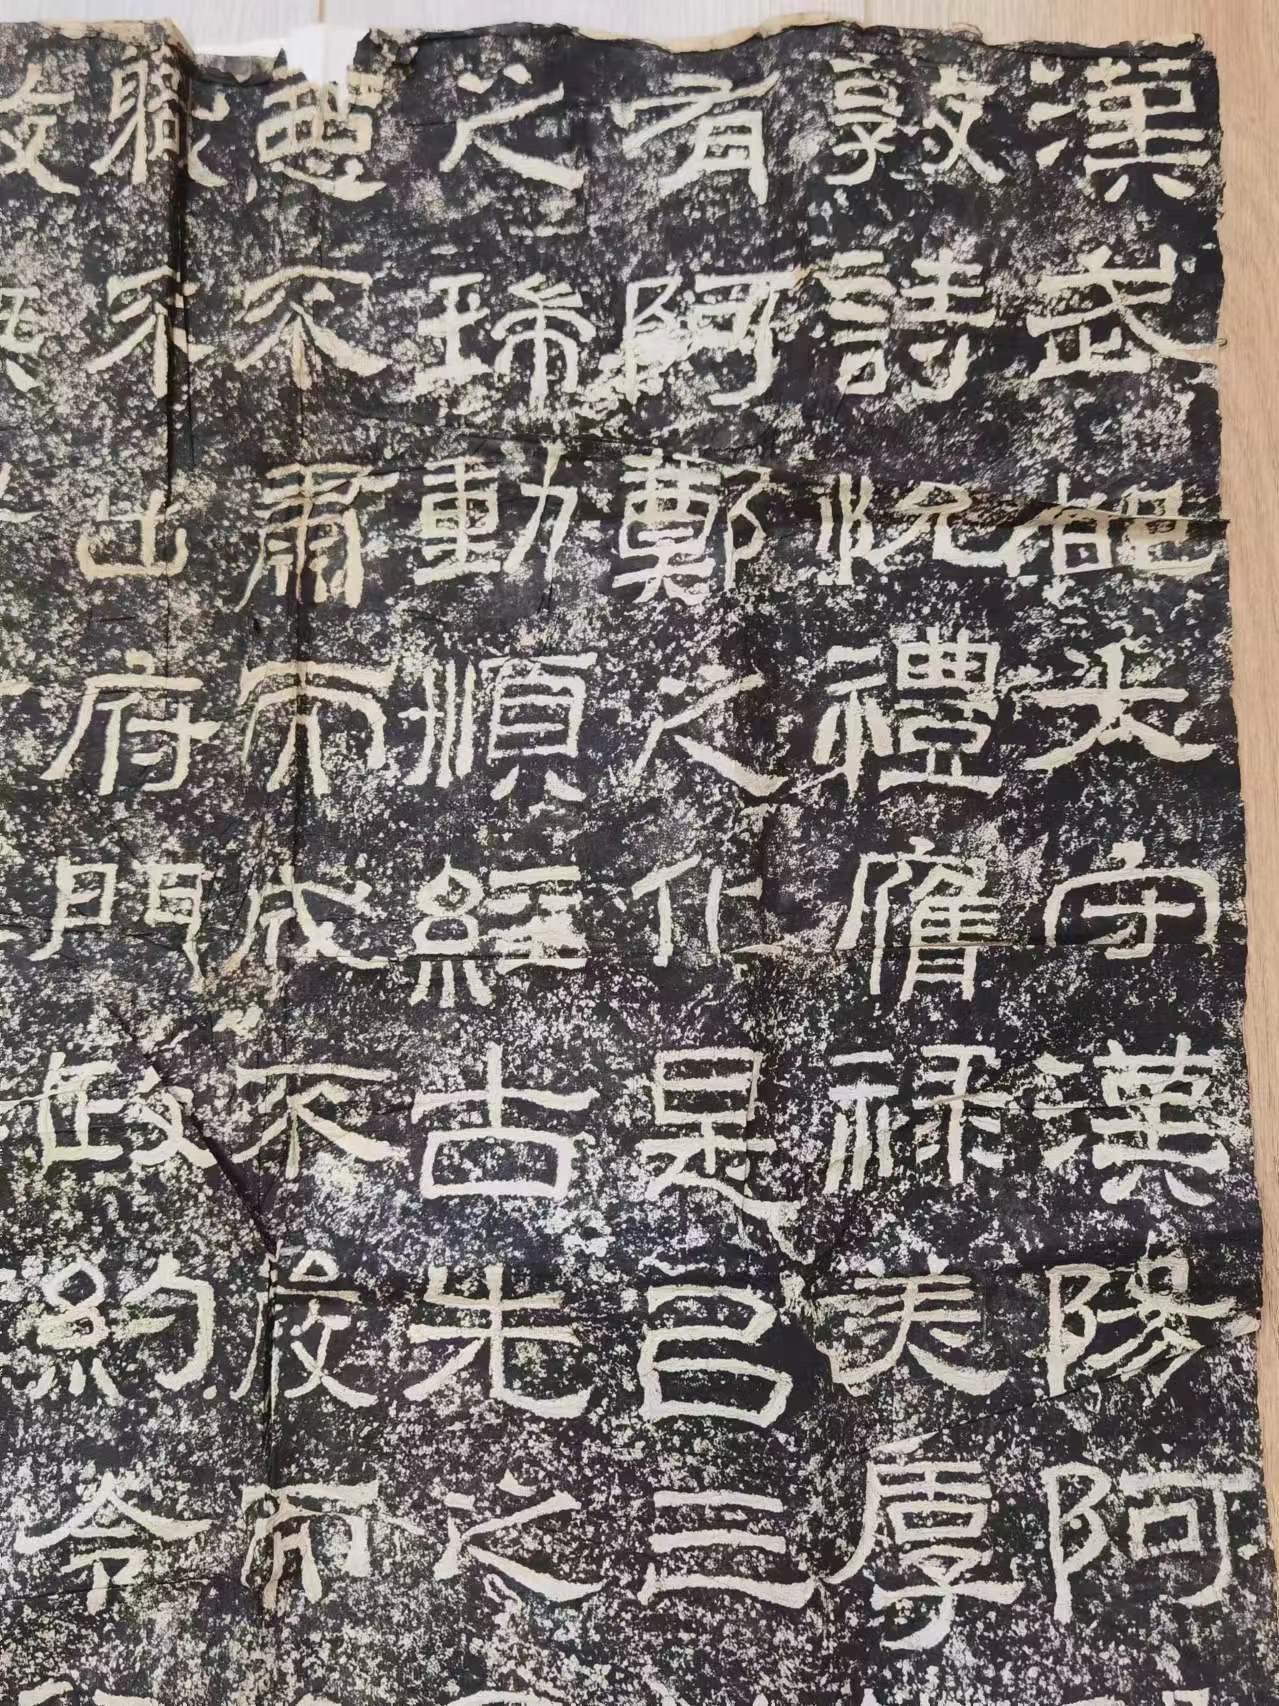 漢武都太守漢陽阿
敦詩悅禮膺祿美厚
有阿鄭之化是以三
之瑞動順經古先之
惡不肅而成不嚴而
職不出府門政約令